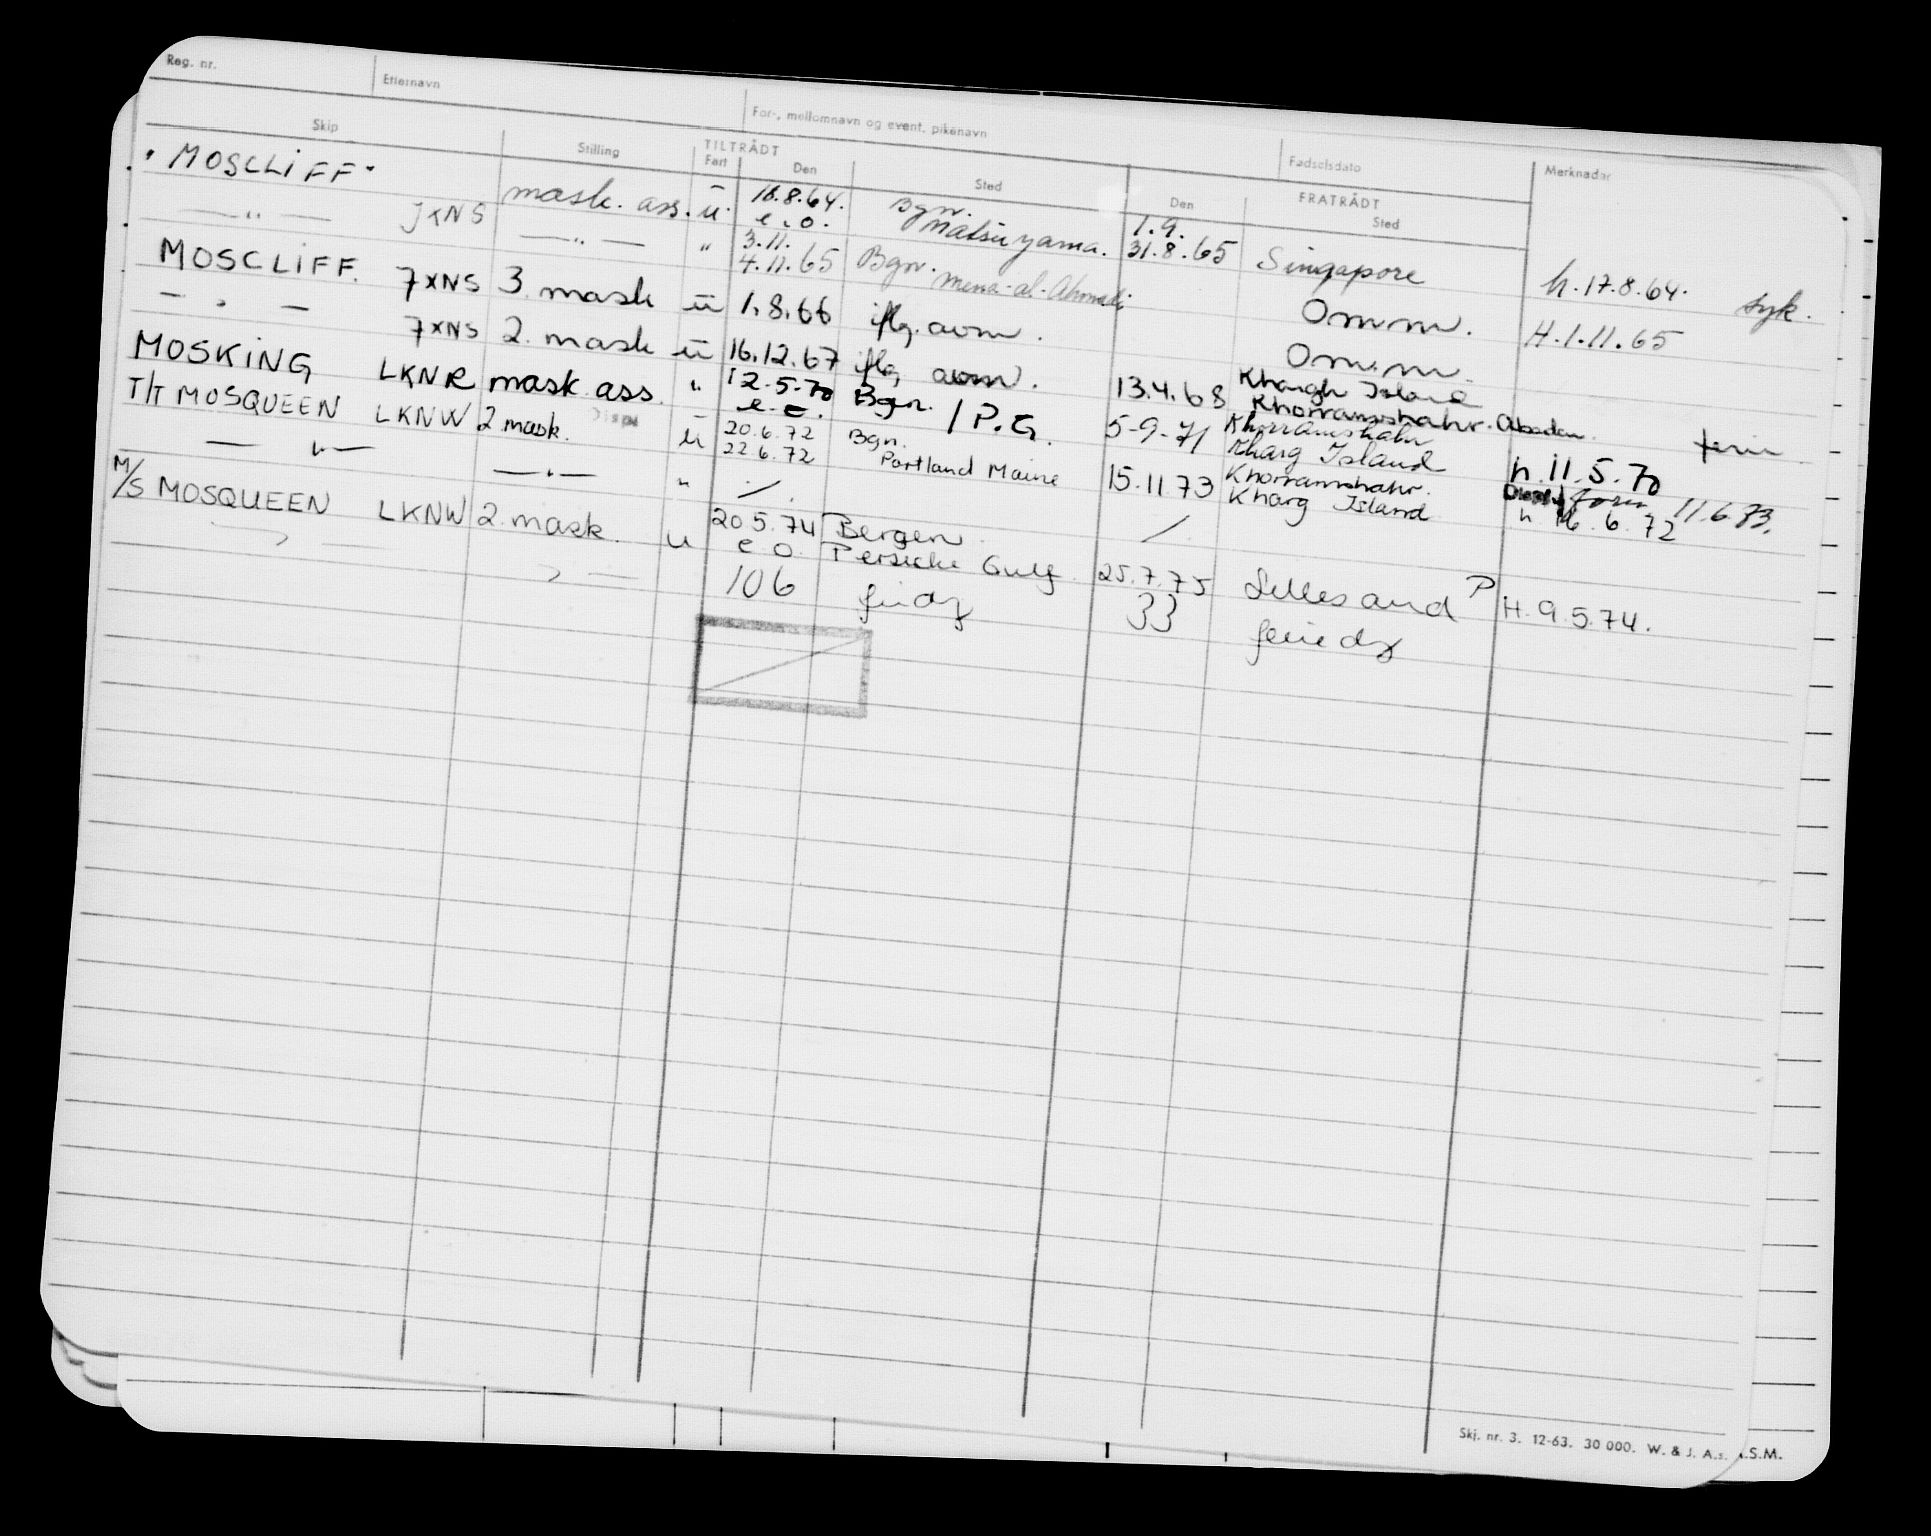 Reg. nr. Etternavn For-, mellomnavn og event. pikenavn Fødselsdato
Skip Stilling TILTRÅDT Fart Den Sted Den FRATRÅDT Sted Merknader
"MOSCLIFF" JXNS mask. ass. u. 18.8.64. e.o. Bgn. Matsuyama. 1.9. 31.8.65 Singapore h. 17.8.64. syk.
— " — — " — " 3.11. 4.11.65 Bgn. Mena-al-Ahmadi Omm. H. 1.11.65
MOSCLIFF. 7XNS 3. mask u 1.8.66 iflg. aom. Omm.
— " — 7XNS 2. mask u 16.12.67 iflg. aom. 13.4.68 Khargh Island Khorramshahr. Abadan. ferie
MOSKING LKNR mask. ass. " 12-5-70 e.o. Bgn. / P.G. 5-9-71 Khorramshahr Kharg Island h. 11.5.70
T/T MOSQUEEN LKNW 2 mask. Disp u 20.6.72 22.6.72 Bgn. Portland Maine 15.11.73 Khorramshahr. Kharg Island h 16.6.72 11.6.73.
— " — — " — " /. /
M/S MOSQUEEN LKNW 2. mask. u 20.5.74 e.o. Bergen Persiske Gulf. 25.7.75 Lillesand P H. 9.5.74.
106 33
Skj. nr. 3. 12-63. 30 000. W. & J. A.s. A.S.M.